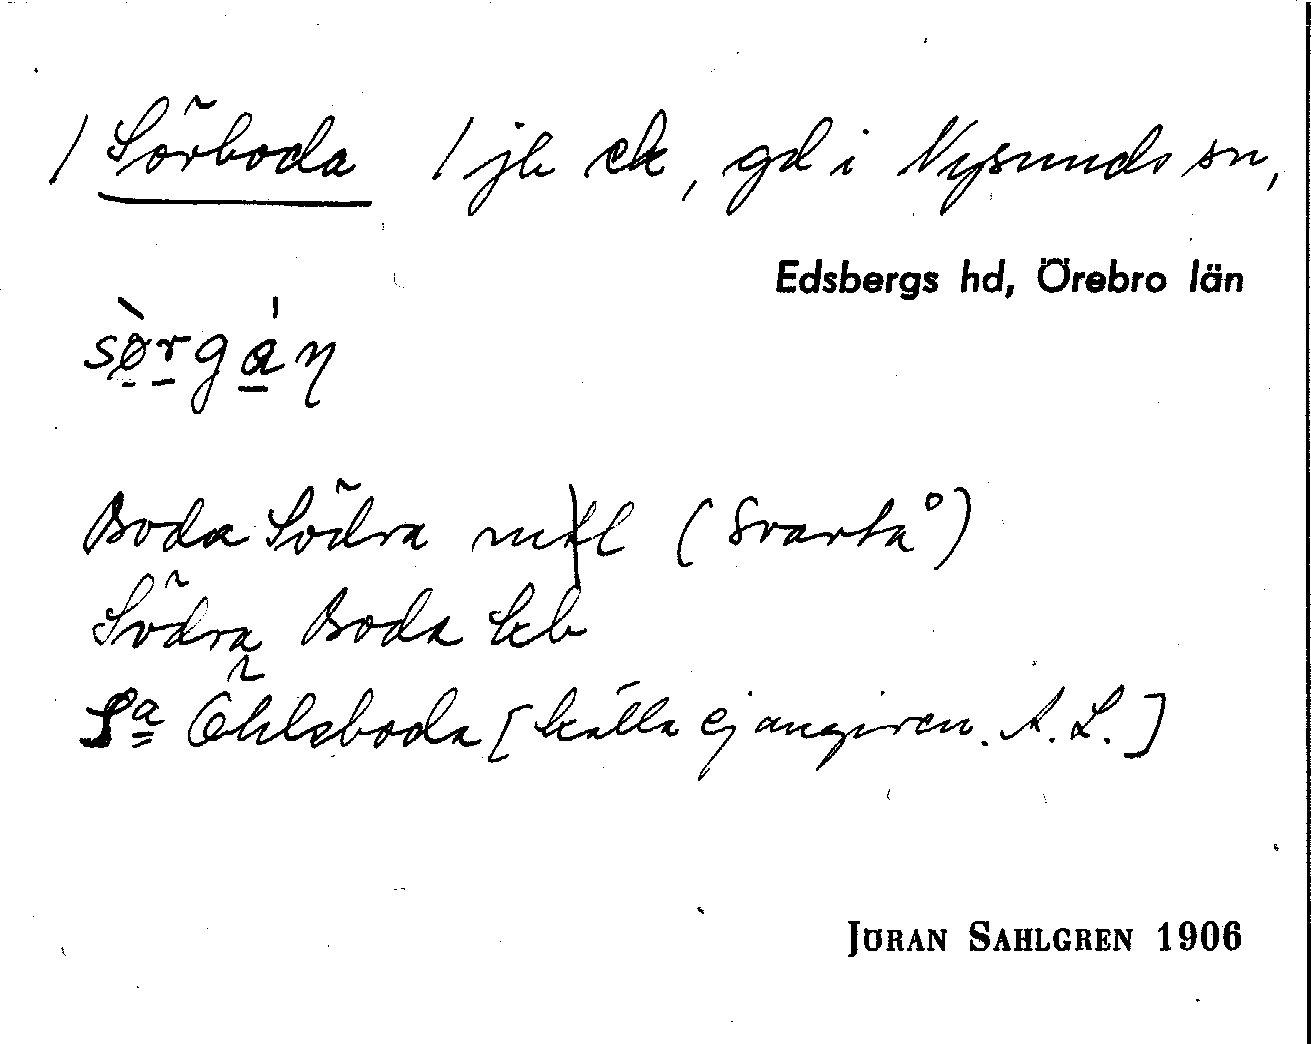 / Sörboda / jb ek, gd i Nysunds sn,
Edsbergs hd, Örebro län
sø̀rgán
Boda Södra mtl (Svartå)
Södra Boda kb
Sa Öhlsboda [källa ej angiven. A. L.]
JÖRAN SAHLGREN 1906